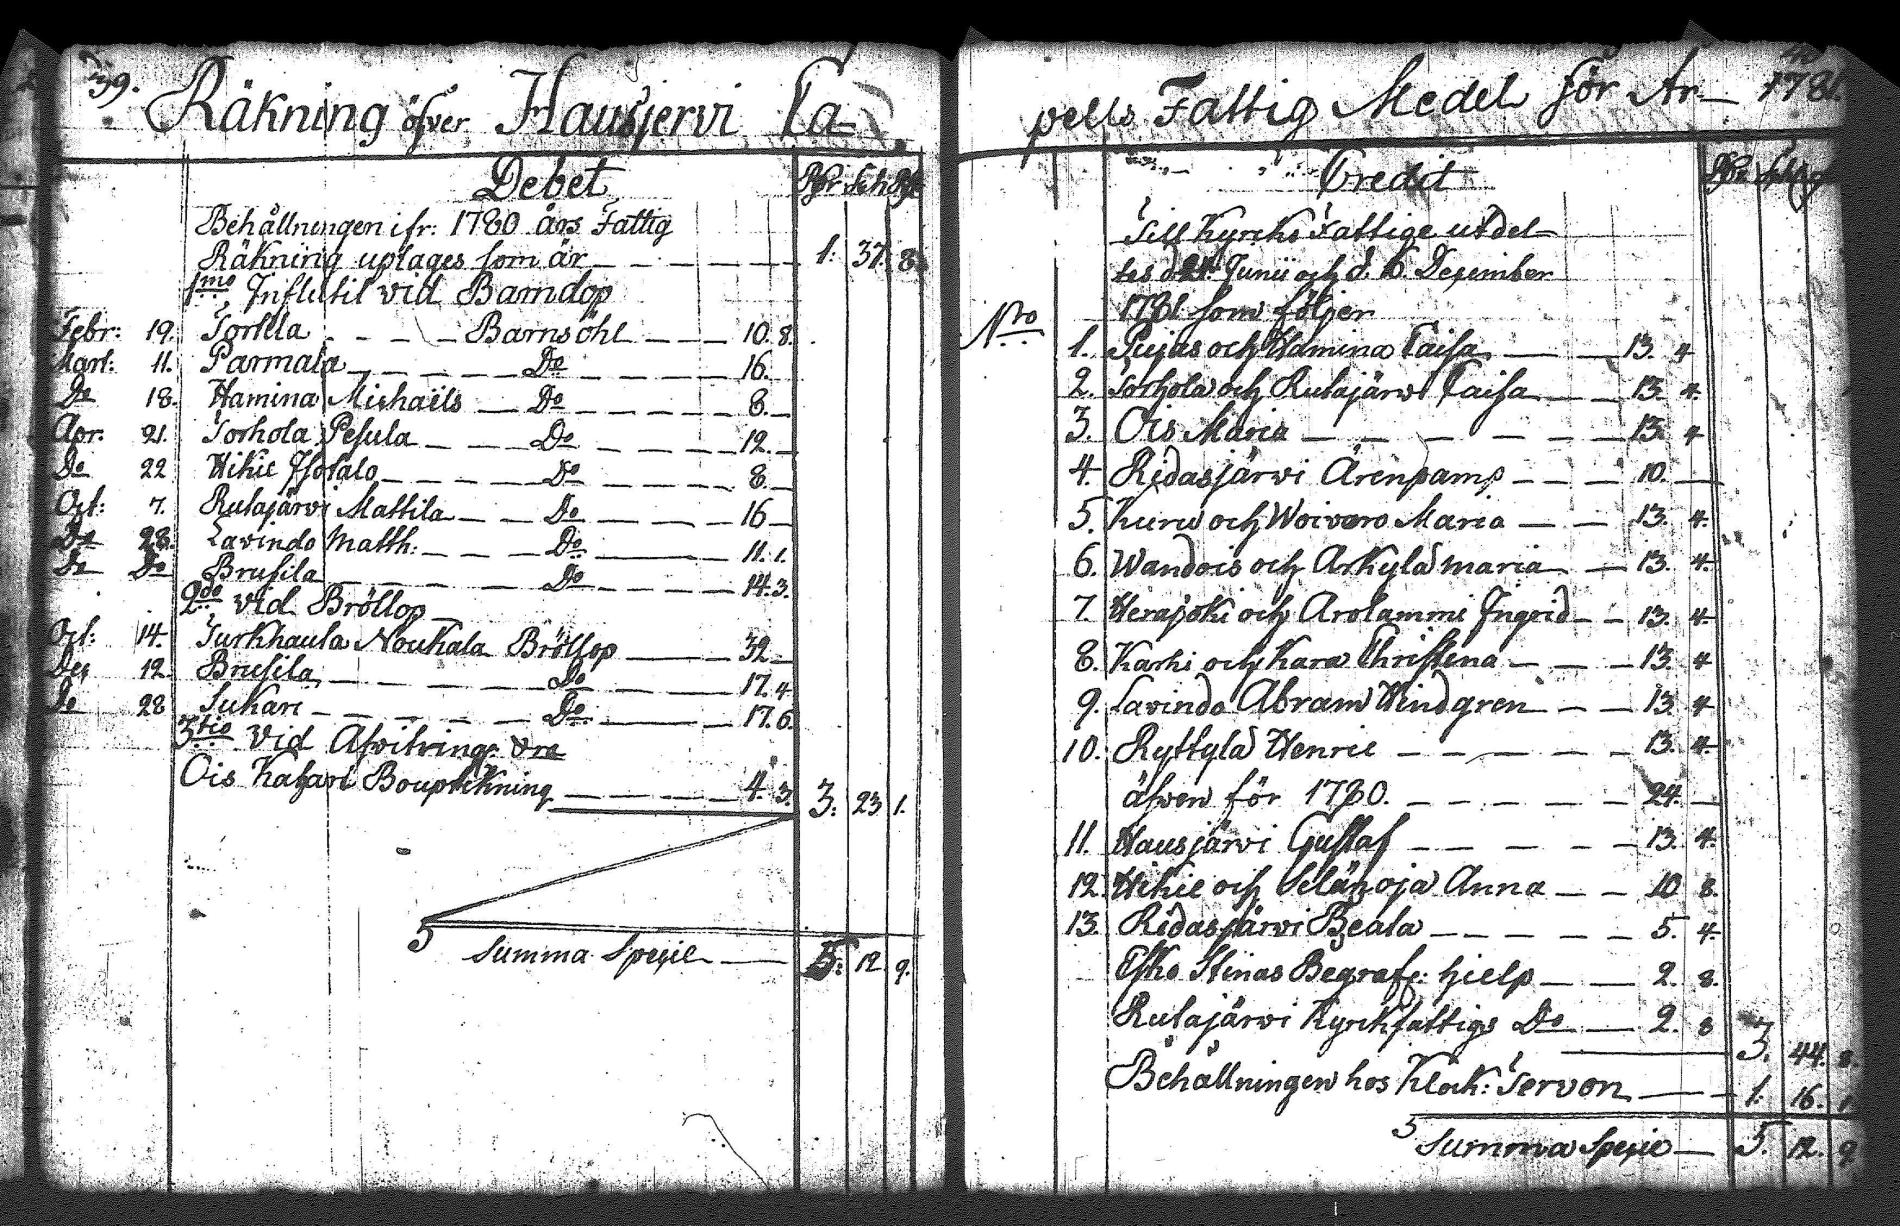 39.
Räkning öfver Hausjervi Ca
Debet Rdr Sch Rst
Behållningen ifr: 1780 års Fattig
Räkning uptages som är 1: 37. 8.
1mo Influtil vid Barndop
Febr: 19. Torhla Barnsöhl 10. 8.
Mart: 11. Parmala Do 16.
Do 18. Hamina Michaëls Do 8.
Apr. 21. Torhola Pesula Do 12.
Do 22 Hikie Isotalo Do 8.
Oct: 7. Rutajärvi Mattila Do 16
Do 28. Lavindo Matth: Do 11. 1.
Do Do Brusila Do 14. 3.
2do vid Bröllop
Oct: 14. Turkhauta Noukala Bröllop 32
Dec 12. Brusila Do 17. 4
Do 28 Sukari Do 17. 6.
3tio vid Afvitring
Ois Katari Bouptekning 4. 3. 3: 23 1.
Summa Specie 5: 12. 9.
pells Fattig Medel för År 1781.
Credit
Till Kyrko Fattige utdel
tes d 24 Junii och d. 16 Desember
Nro 1781 som följer
1. Pujas och Hamina Caisa 13. 4
2. Torhola och Rutajärvi Caisa 13. 4.
3. Ois Maria 13. 4
4. Ridasjärvi Ärenpams 10.
5. Kuru och Woivaro Maria 13. 4.
6. Wandois och Arkylä maria 13. 4.
7. Herajoki och Arolammi Ingrid 13. 4
8. Karhi och Kara Christina 13. 4
9. Lavindo Abram Windgren 13. 4
10. Ryttylä Henric 13. 4.
äfven för 1780. 24.
11. Hausjärvi Gustaf 13. 4.
12. Hikie och Selänoja Anna 10 8.
13. Ridasjärvi Beata 5. 4.
Esko Stinas Begrafn: hielp 2. 8.
Rutajärvi Kyrkfattigs Do 2. 8
3. 44. 8.
Behållningen hos Klock: Tervon 1: 16. 1.
Summa Specie 5. 12. 9